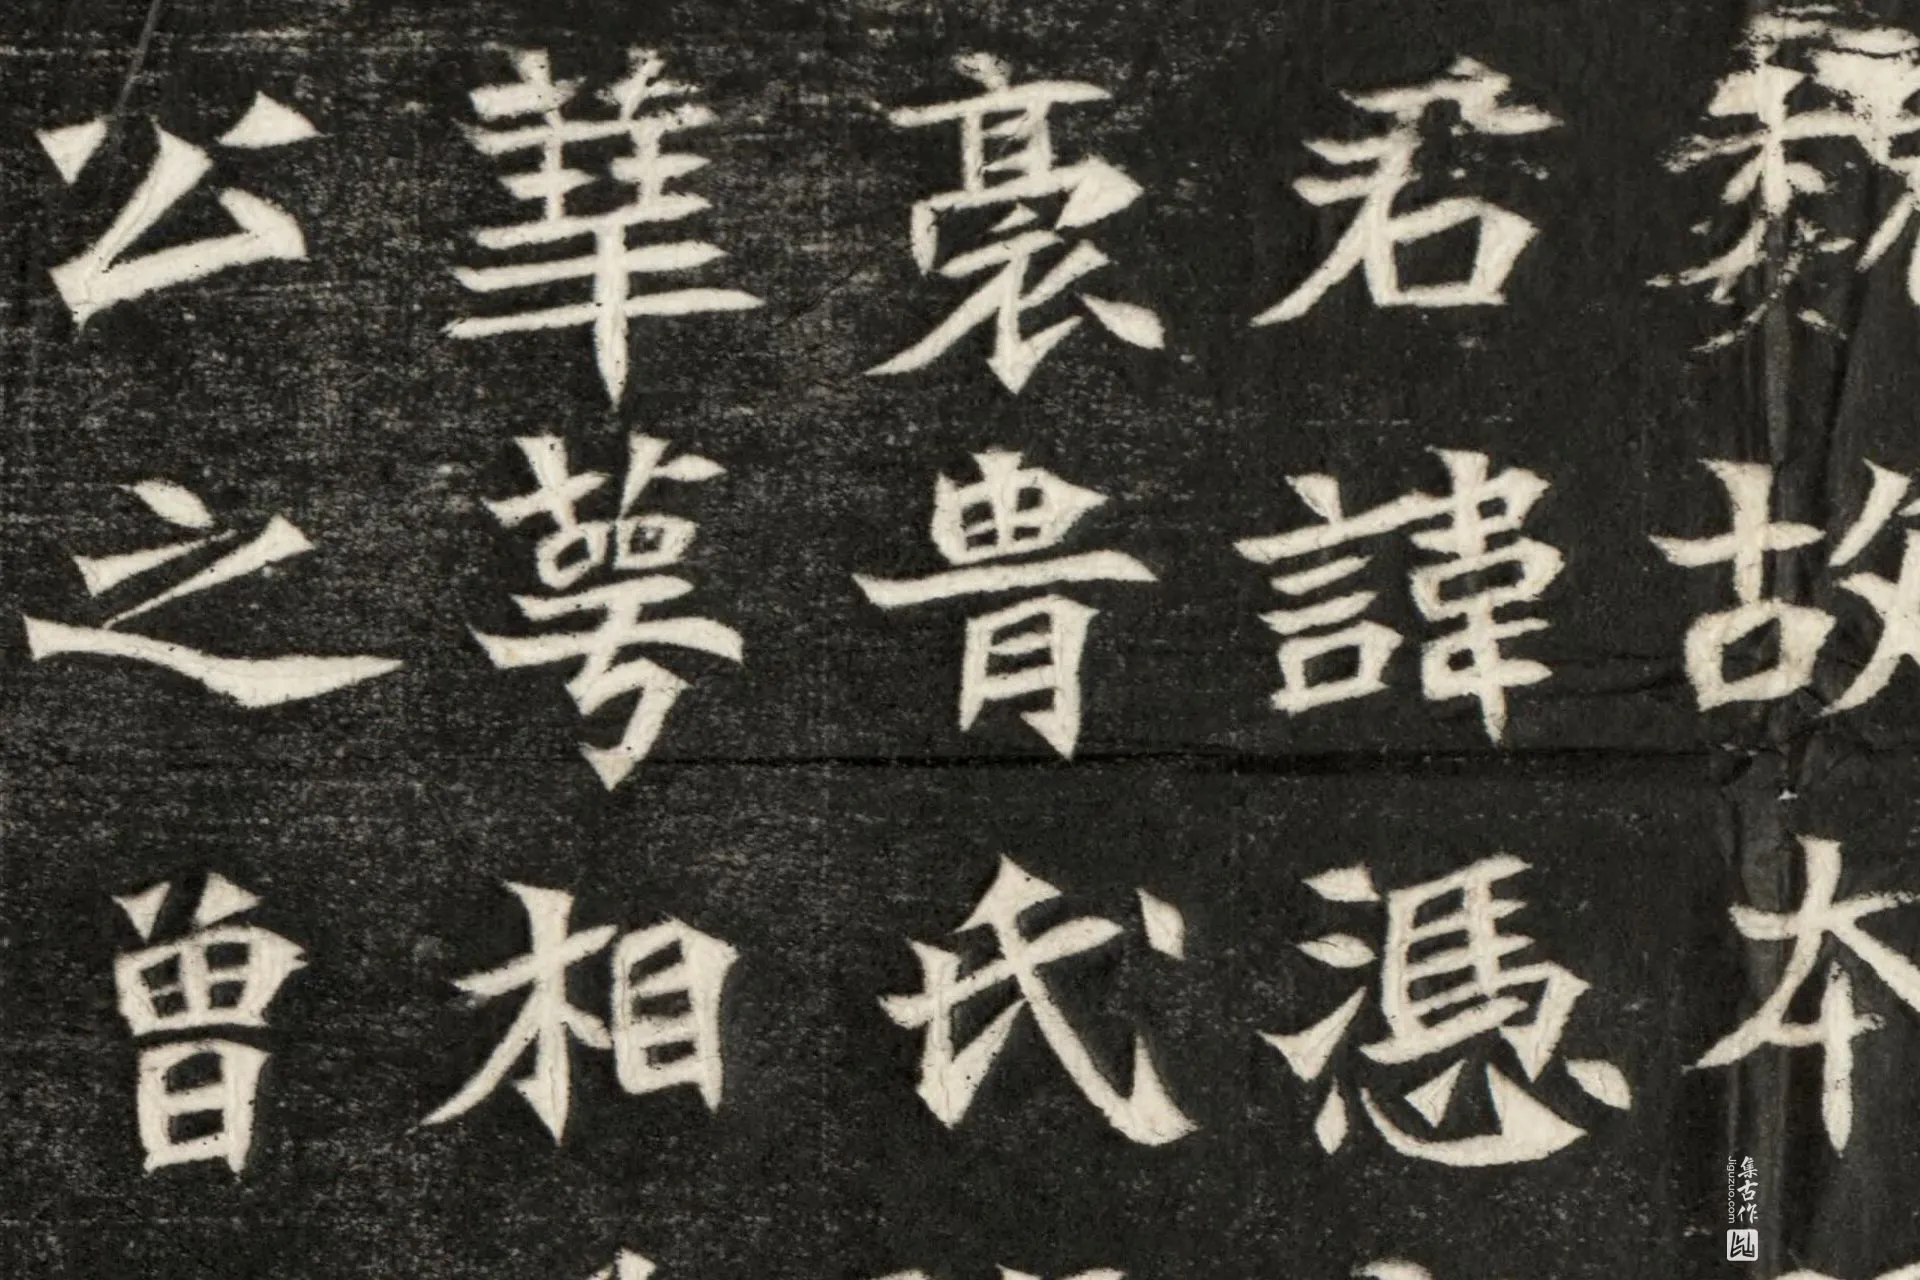 魏故本
君諱憑
裔冑氏
華萼相
公之曾
集古作
Jiguzuo.com